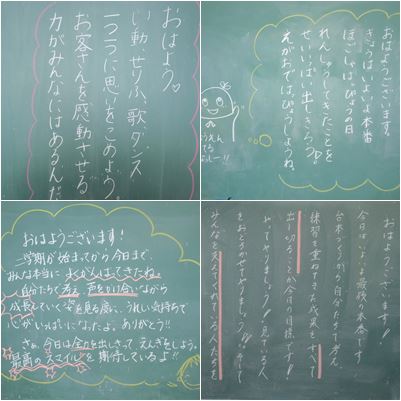 おはよう♡
い動、せりふ、歌、ダンス
一つ一つに思いをこめよう。
お客さんを感動させる
力がみんなにはあるんだ
おはようございます。
きょうは、いよいよ本番
ほごしゃはっぴょうの日
れんしゅうしてきたことを
せいいっぱい出しきろう
えがおではっぴょうしようね。
おはようございます!
二学期が始まってから今日まで、
みんな本当によくがんばってきたね。
自分たちで考え、声をかけ合いながら
成長していく姿を見る度に、うれしい気持ちで
心がいっぱいになったよ。ありがとう!!
さぁ、今日は全力を出しきって えんぎをしよう。
最高のスマイルを期待しているよ!!
おはようございます!!
今日はいよいよ最後の本番です。
台本づくりから自分たちで考え、
練習を重ねてきた成果をすべて
出し切ることが今日の目標です!!
やってやりましょう!!見ている人
をおどろかせてやろう。そして
みんなを支えてくれている人たちを